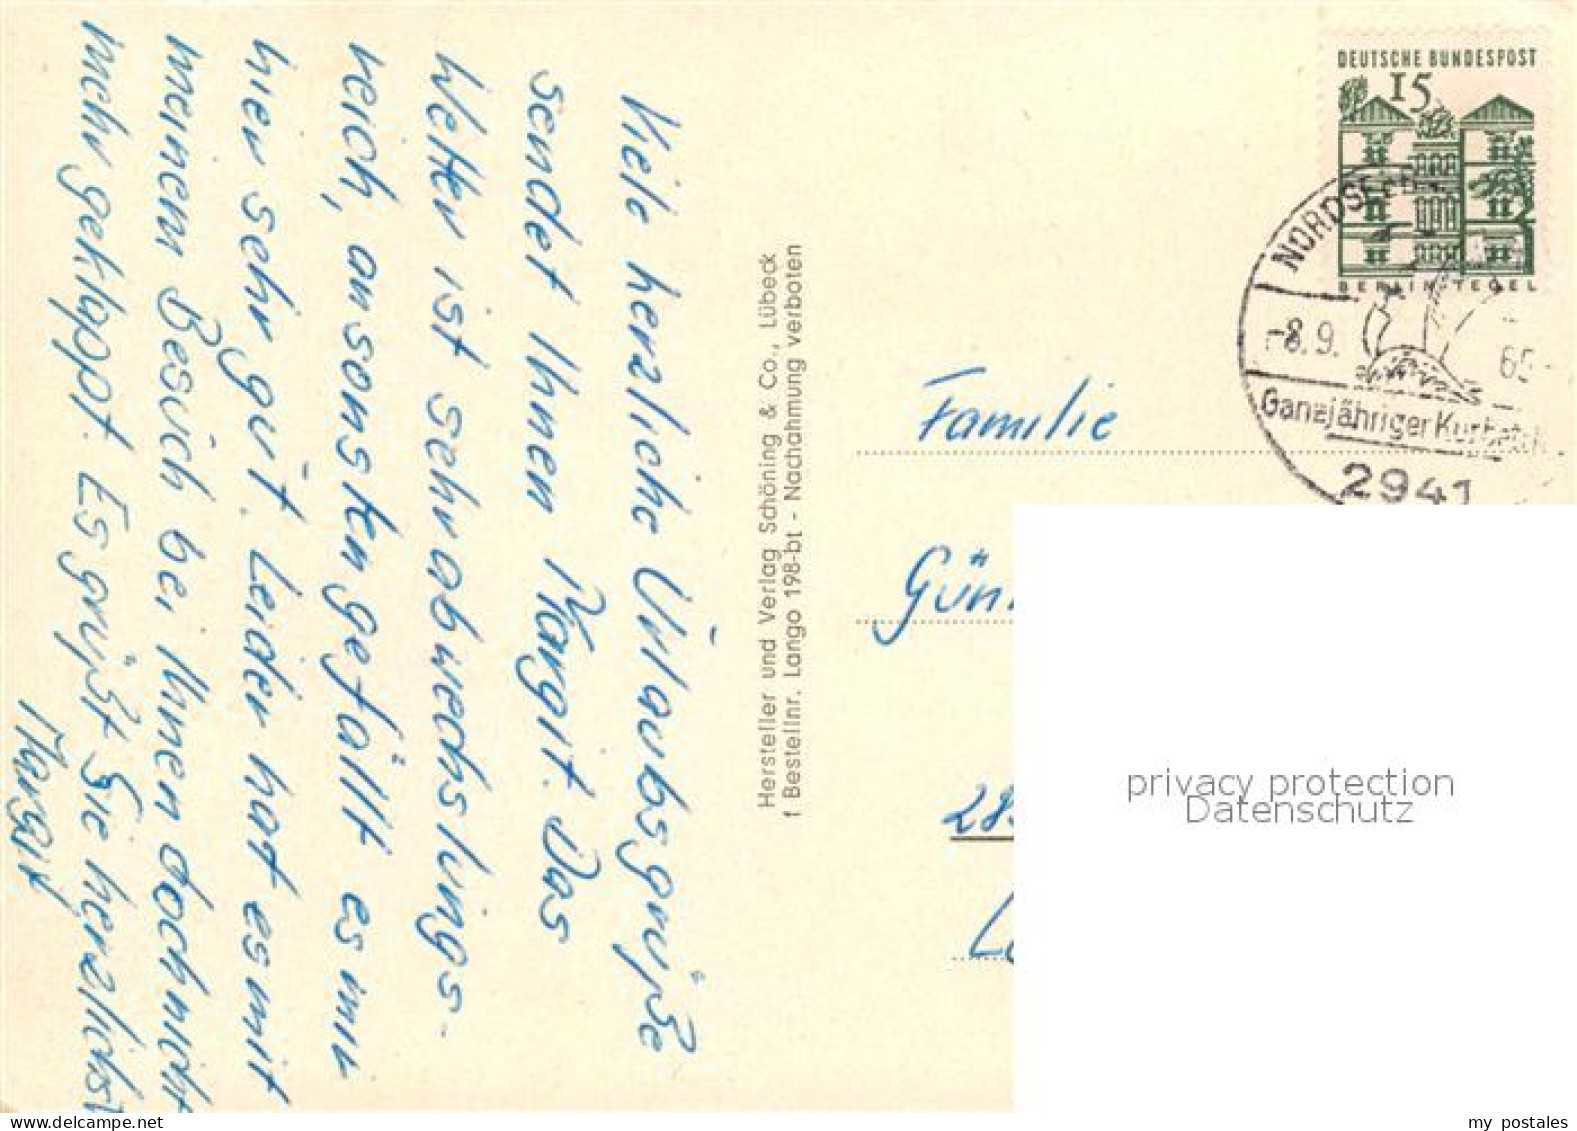 Viele herzliche Urlaubsgrüße
sendet Ihnen Margit. Das
Wetter ist sehr abwechslungs-
reich, ansonsten gefällt es mir
hier sehr gut. Leider hat es mit
meinem Besuch bei Ihnen doch nicht
mehr geklappt. Es grüßt Sie herzlichst
Margit
Hersteller und Verlag Schöning & Co., Lübeck
f Bestellnr. Lango 198-bt - Nachahmung verboten
DEUTSCHE BUNDESPOST
15
BERLIN TEGEL
NORDSEEB
-8.9. 65-
Ganzjähriger
2941
Familie
Gün
28
privacy protection
Datenschutz
delcampe.net
my_postales